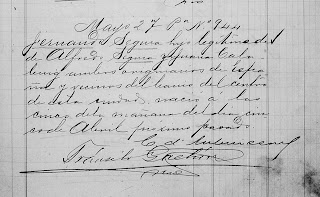 Mayo 27 Pa No 944
Fernando Segura hijo legitimo de
de Alfredo Segura y Juana Cata
lina ambos originarios de Espa
ña y vecinos del barrio del centro
de esta ciudad, nació a las
cinco de la mañana del dia cin
co de Abril proximo pasado
C. d'
Tránsito